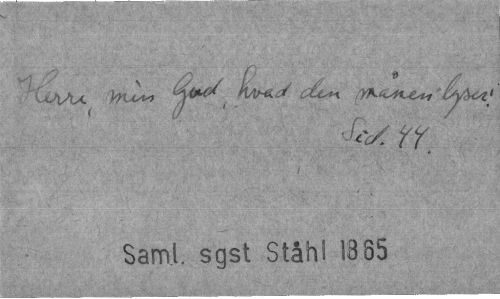 Herre, min Gud, hvad den månen lyser!
Sid. 44.
Saml. sgst Ståhl 1865